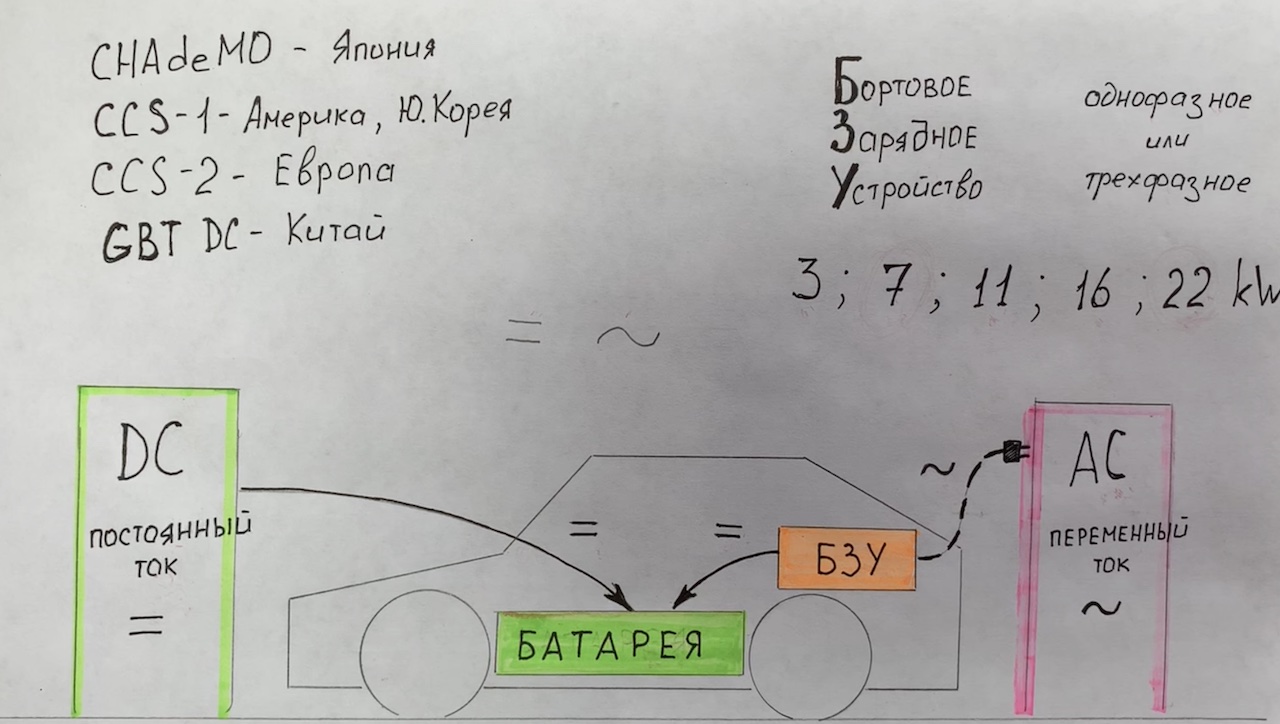 CHAdeMO - Япония
CCS-1 - Америка, Ю.Корея
CCS-2 - Европа
GBT DC - Китай
Бортовое
Зарядное
Устройство
однофазное
или
трехфазное
3 ; 7 ; 11 ; 16 ; 22 kW
= ~
DC
ПОСТОЯННЫЙ
ТОК
=
=
=
БЗУ
БАТАРЕЯ
~
AC
ПЕРЕМЕННЫЙ
ТОК
~